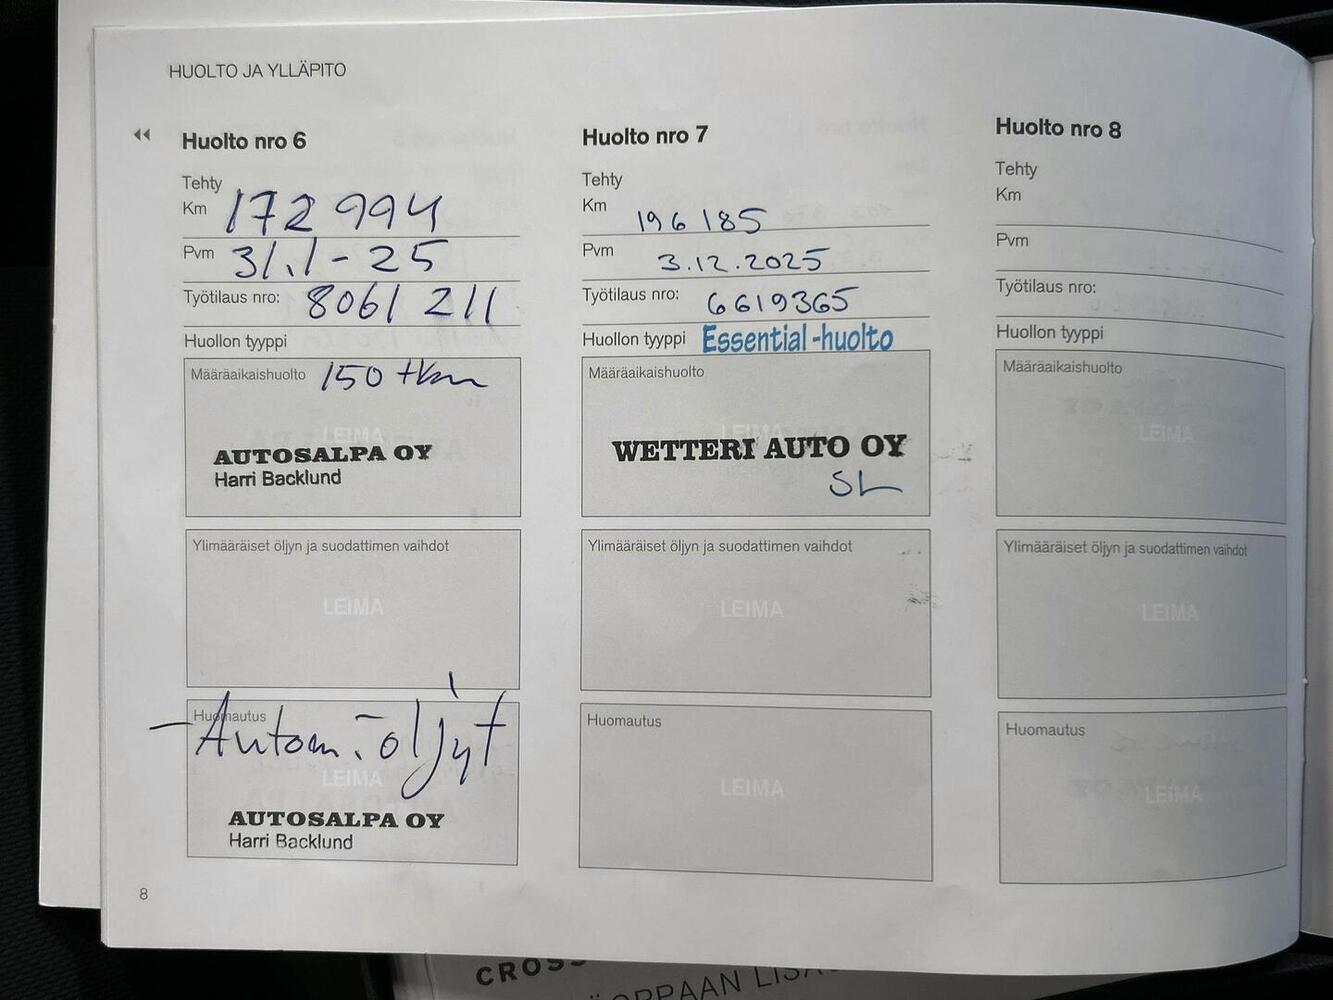 HUOLTO JA YLLÄPITO
Huolto nro 6
Tehty
Km 172 994
Pvm 31.1-25
Työtilaus nro: 8061 211
Huollon tyyppi
Määräaikaishuolto 150 tkm
LEIMA
AUTOSALPA OY
Harri Backlund
Ylimääräiset öljyn ja suodattimen vaihdot
LEIMA
Huomautus
- Autom. öljyt
LEIMA
AUTOSALPA OY
Harri Backlund
Huolto nro 7
Tehty
Km 196 185
Pvm 3.12.2025
Työtilaus nro: 6619365
Huollon tyyppi Essential-huolto
Määräaikaishuolto
LEIMA
WETTERI AUTO OY
SL
Ylimääräiset öljyn ja suodattimen vaihdot
LEIMA
Huomautus
LEIMA
Huolto nro 8
Tehty
Km
Pvm
Työtilaus nro:
Huollon tyyppi
Määräaikaishuolto
LEIMA
Ylimääräiset öljyn ja suodattimen vaihdot
LEIMA
Huomautus
LEIMA
8